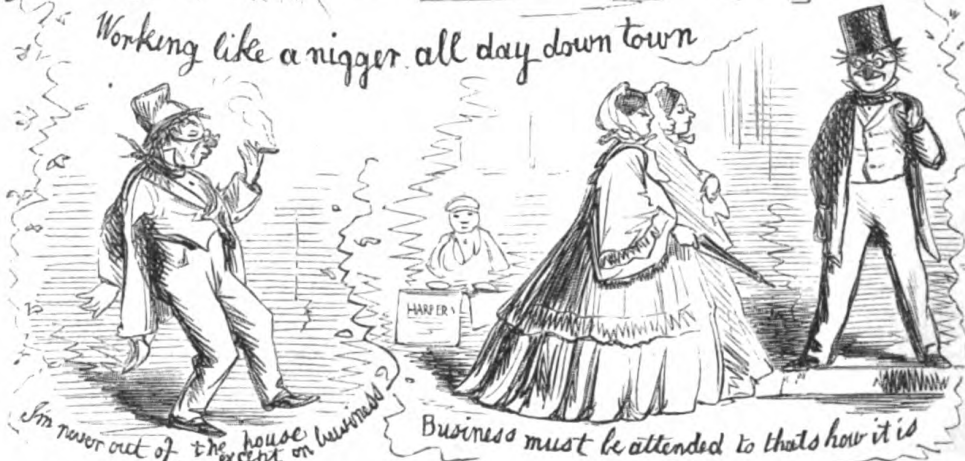 Working like a nigger all day down town
HARPER'S
I'm never out of the house
except on buusiness
Business must be attended to thats how it is